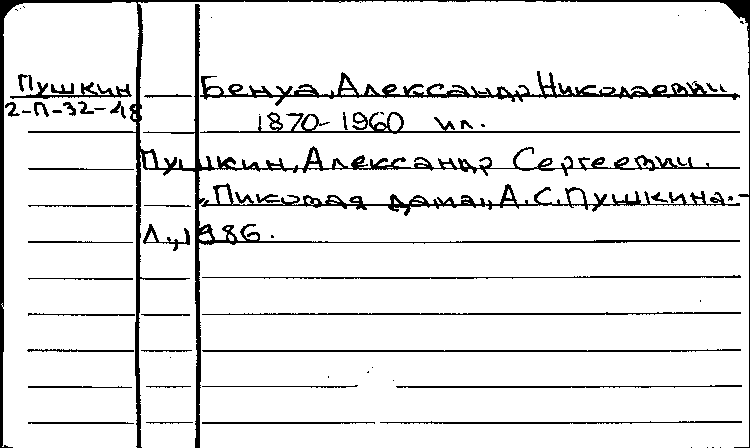 Пушкин
2-П-32-48
Бенуа, Александр Николаевич,
1870-1960 ил.
Пушкин, Александр Сергеевич.
„Пиковая дама„ А.С.Пушкина.-
Л., 1986.